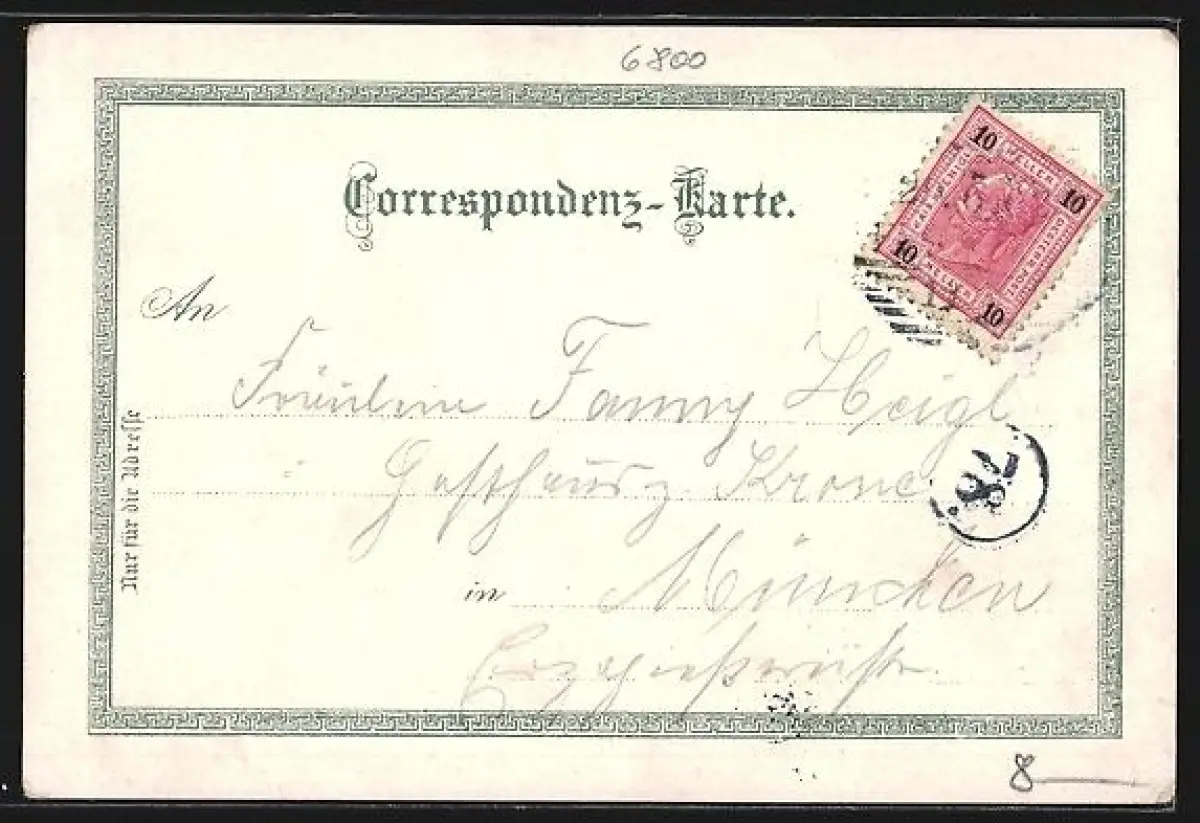 6800
Correspondenz-Karte.
10 HELLER 10
10 HELLER 10
An
Fräulein Fanny Heigl
Gasthaus z. Krone
in München
Nur für die Adresse
78
8